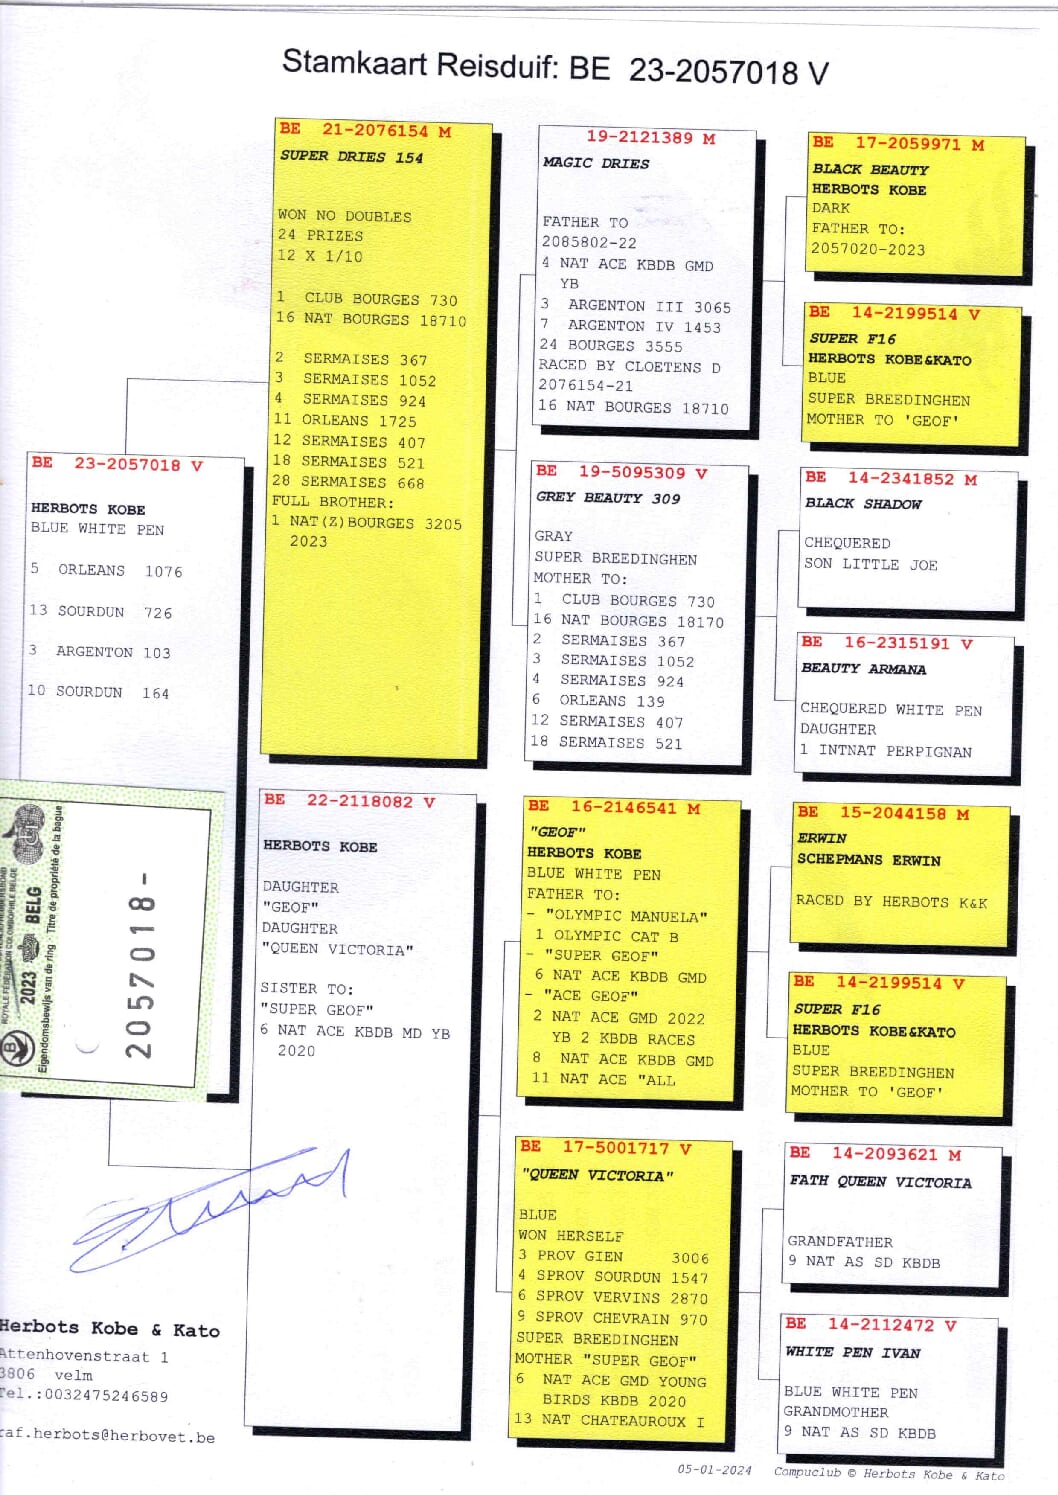 Stamkaart Reisduif: BE 23-2057018 V
BE 23-2057018 V
HERBOTS KOBE
BLUE WHITE PEN
5 ORLEANS 1076
13 SOURDUN 726
3 ARGENTON 103
10 SOURDUN 164
BE 21-2076154 M
SUPER DRIES 154
WON NO DOUBLES
24 PRIZES
12 X 1/10
1 CLUB BOURGES 730
16 NAT BOURGES 18710
2 SERMAISES 367
3 SERMAISES 1052
4 SERMAISES 924
11 ORLEANS 1725
12 SERMAISES 407
18 SERMAISES 521
28 SERMAISES 668
FULL BROTHER:
1 NAT(Z)BOURGES 3205
2023
BE 22-2118082 V
HERBOTS KOBE
DAUGHTER
"GEOF"
DAUGHTER
"QUEEN VICTORIA"
SISTER TO:
"SUPER GEOF"
6 NAT ACE KBDB MD YB
2020
19-2121389 M
MAGIC DRIES
FATHER TO
2085802-22
4 NAT ACE KBDB GMD
YB
3 ARGENTON III 3065
7 ARGENTON IV 1453
24 BOURGES 3555
RACED BY CLOETENS D
2076154-21
16 NAT BOURGES 18710
BE 19-5095309 V
GREY BEAUTY 309
GRAY
SUPER BREEDINGHEN
MOTHER TO:
1 CLUB BOURGES 730
16 NAT BOURGES 18170
2 SERMAISES 367
3 SERMAISES 1052
4 SERMAISES 924
6 ORLEANS 139
12 SERMAISES 407
18 SERMAISES 521
BE 16-2146541 M
"GEOF"
HERBOTS KOBE
BLUE WHITE PEN
FATHER TO:
- "OLYMPIC MANUELA"
1 OLYMPIC CAT B
- "SUPER GEOF"
6 NAT ACE KBDB GMD
- "ACE GEOF"
2 NAT ACE GMD 2022
YB 2 KBDB RACES
8 NAT ACE KBDB GMD
11 NAT ACE "ALL
BE 17-5001717 V
"QUEEN VICTORIA"
BLUE
WON HERSELF
3 PROV GIEN 3006
4 SPROV SOURDUN 1547
6 SPROV VERVINS 2870
9 SPROV CHEVRAIN 970
SUPER BREEDINGHEN
MOTHER "SUPER GEOF"
6 NAT ACE GMD YOUNG
BIRDS KBDB 2020
13 NAT CHATEAUROUX I
BE 17-2059971 M
BLACK BEAUTY
HERBOTS KOBE
DARK
FATHER TO:
2057020-2023
BE 14-2199514 V
SUPER F16
HERBOTS KOBE&KATO
BLUE
SUPER BREEDINGHEN
MOTHER TO 'GEOF'
BE 14-2341852 M
BLACK SHADOW
CHEQUERED
SON LITTLE JOE
BE 16-2315191 V
BEAUTY ARMANA
CHEQUERED WHITE PEN
DAUGHTER
1 INTNAT PERPIGNAN
BE 15-2044158 M
ERWIN
SCHEPMANS ERWIN
RACED BY HERBOTS K&K
BE 14-2199514 V
SUPER F16
HERBOTS KOBE&KATO
BLUE
SUPER BREEDINGHEN
MOTHER TO 'GEOF'
BE 14-2093621 M
FATH QUEEN VICTORIA
GRANDFATHER
9 NAT AS SD KBDB
BE 14-2112472 V
WHITE PEN IVAN
BLUE WHITE PEN
GRANDMOTHER
9 NAT AS SD KBDB
ROYALE FÉDÉRATION COLOMBOPHILE BELGE
2023 BELG
Eigendomsbewijs van de ring - Titre de propriété de la bague
2057018-
Herbots Kobe & Kato
Attenhovenstraat 1
3806 velm
Tel.:0032475246589
raf.herbots@herbovet.be
05-01-2024 Compuclub © Herbots Kobe & Kato